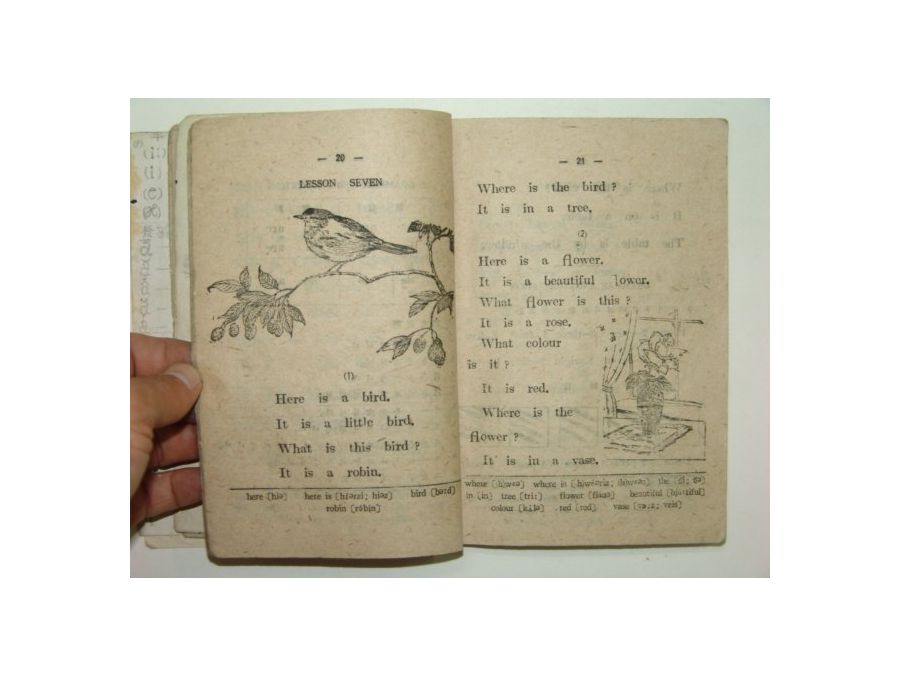 — 20 —
LESSON SEVEN
(1)
Here is a bird.
It is a little bird.
What is this bird ?
It is a robin.
here [hiə] here is bird [bə:d]
robin [rɔ́bin]
— 21 —
Where is the bird ?
It is in a tree.
(2)
Here is a flower.
It is a beautiful lower.
What flower is this ?
It is a rose.
What colour
is it ?
It is red.
Where is the
flower ?
It is in a vase.
where where is the
in [in] tree [tri:] flower beautiful
colour red [red] vase